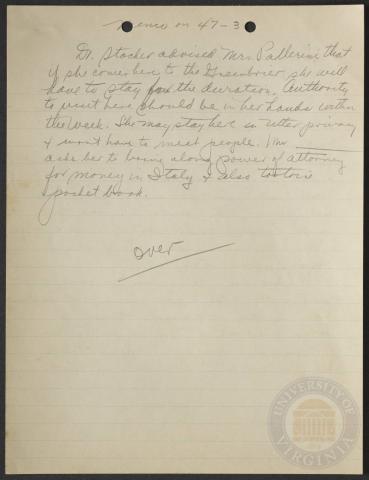 Memo on 47-3
Dr. Stocker advised Mrs. Pallerini that
if she comes here to the Greenbrier she will
have to stay for the duration. Authority
to visit here should be in her hands within
the week. She may stay here in utter privacy
& won't have to meet people.
asks her to bring along power of attorney
for money in Italy & also
pocket book.
over
UNIVERSITY OF VIRGINIA